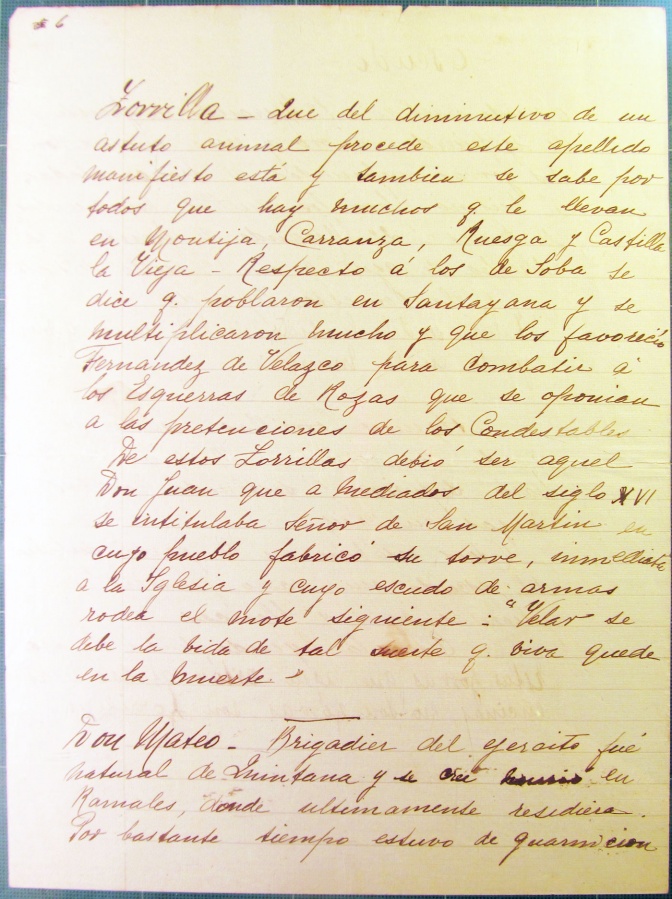 6
Zorrilla - Que del diminutivo de un
astuto animal procede este apellido
manifiesto está y tambien se sabe por
todos que hay muchos q. le llevan
en Montija, Carranza, Ruesga y Castilla
la Vieja - Respecto á los de Soba se
dice q. poblaron en Santayana y se
multiplicaron mucho y que los favoreció
Fernandez de Velazco para combatir á
los Esguerras de Rozas que se oponian
a las pretenciones de los Condestables
De estos Zorrillas debió ser aquel
Don Juan que a mediados del siglo XVI
se intitulaba Señor de San Martin en
cuyo pueblo fabricó su torre, inmediata
a la Iglesia y cuyo escudo de armas
rodea el mote siguiente: "Velar se
debe la vida de tal suerte q. viva quede
en la muerte"
Don Mateo - Brigadier del ejercito fué
natural de Quintana y se cree murió en
Ramales, donde ultimamente residiera.
Por bastante tiempo estuvo de guarnicion